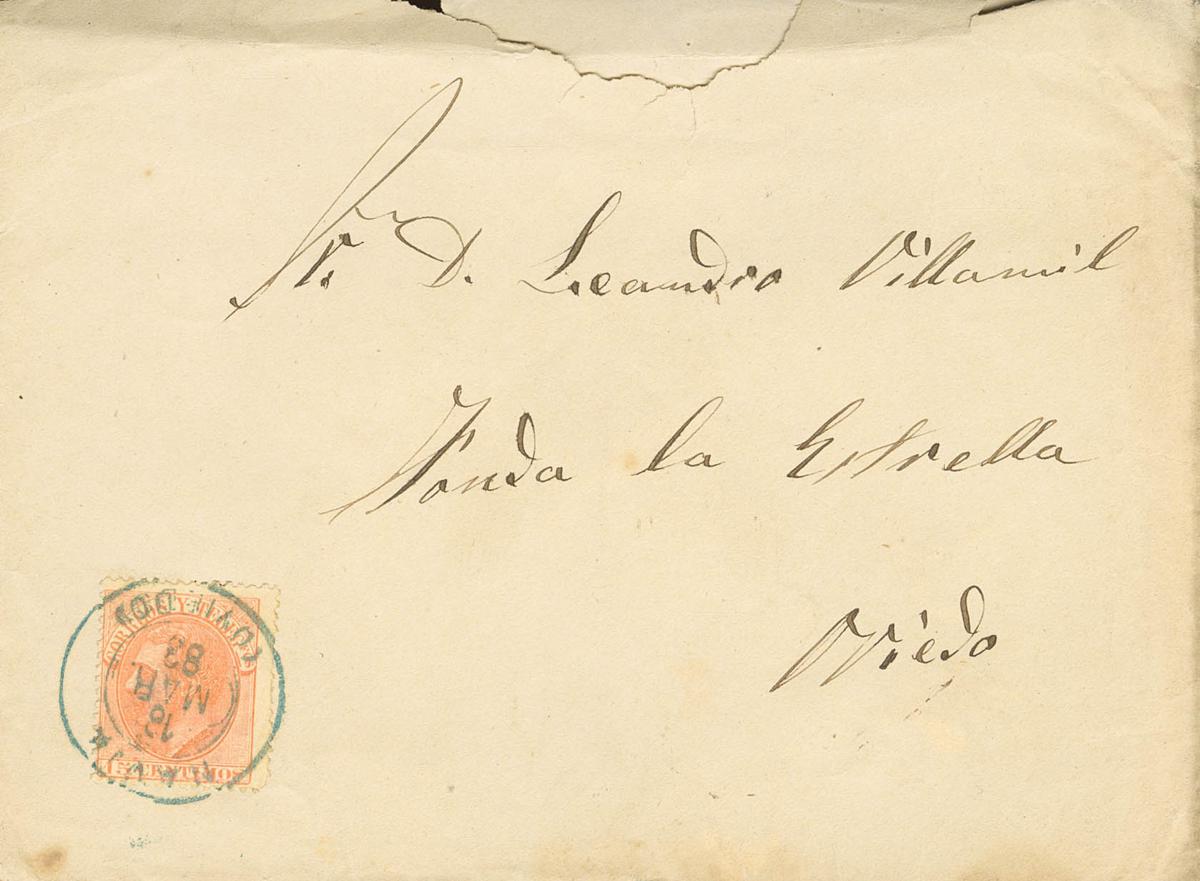 Sr. D. Leandro Villamil
Fonda la Estrella
Oviedo
CORREOS Y TELEGS
15 CENTIMOS
18
MAR
83